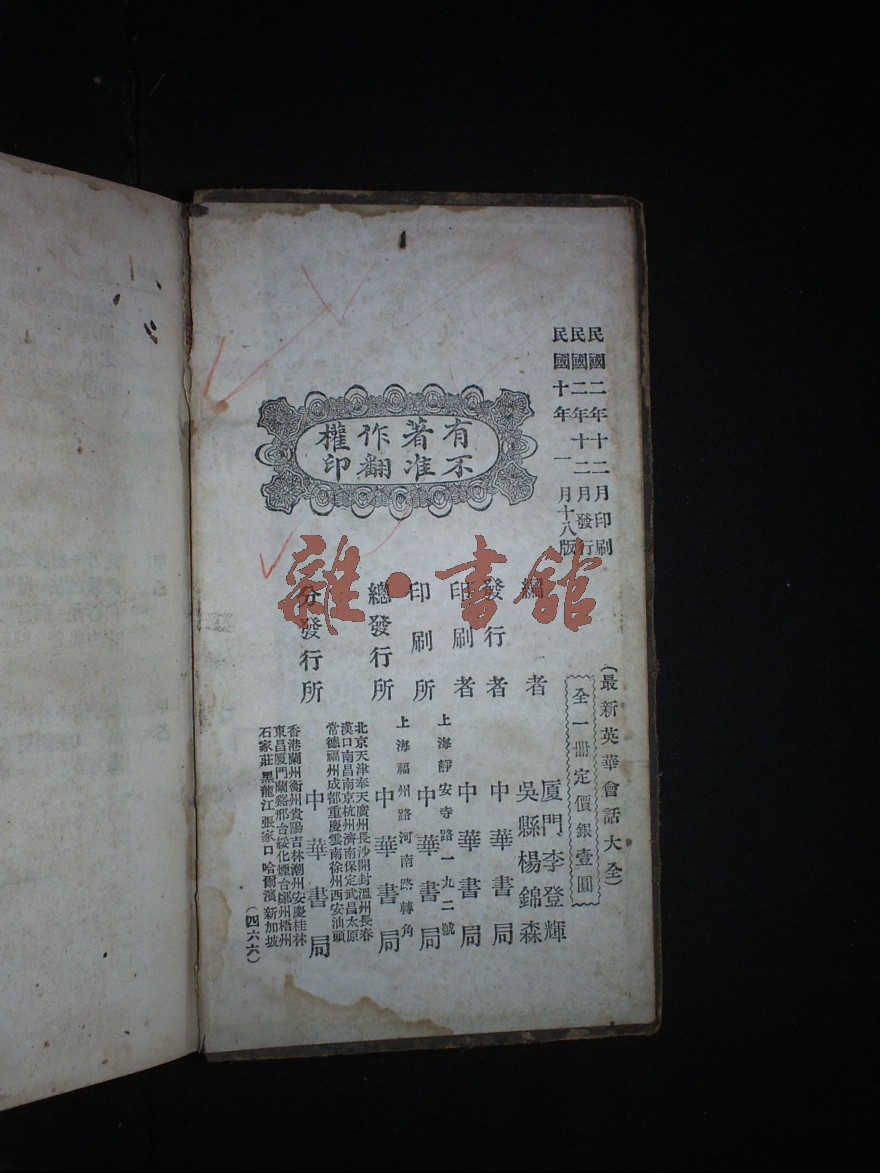 民國二年十二月印刷
民國二年十二月發行
民國十年一月十八版
有著作權
不准翻印
(最新英華會話大全)
全一冊定價銀壹圓
編者
廈門李登輝
吳縣楊錦森
發行者
中華書局
印刷者
中華書局
印刷所
上海靜安寺路一九二號
中華書局
總發行所
上海福州路河南路轉角
中華書局
分發行所
北京天津奉天廣州長沙開封溫州長春
漢口南昌南京杭州濟南保定武昌太原
常德福州成都重慶雲南徐州西安汕頭
中華書局
香港蘭州衡州貴陽吉林潮州安慶桂林
東昌廈門蘭谿邢台綏化煙台鄭州梧州
石家莊黑龍江張家口哈爾濱新加坡
(四六六)
雜·書館